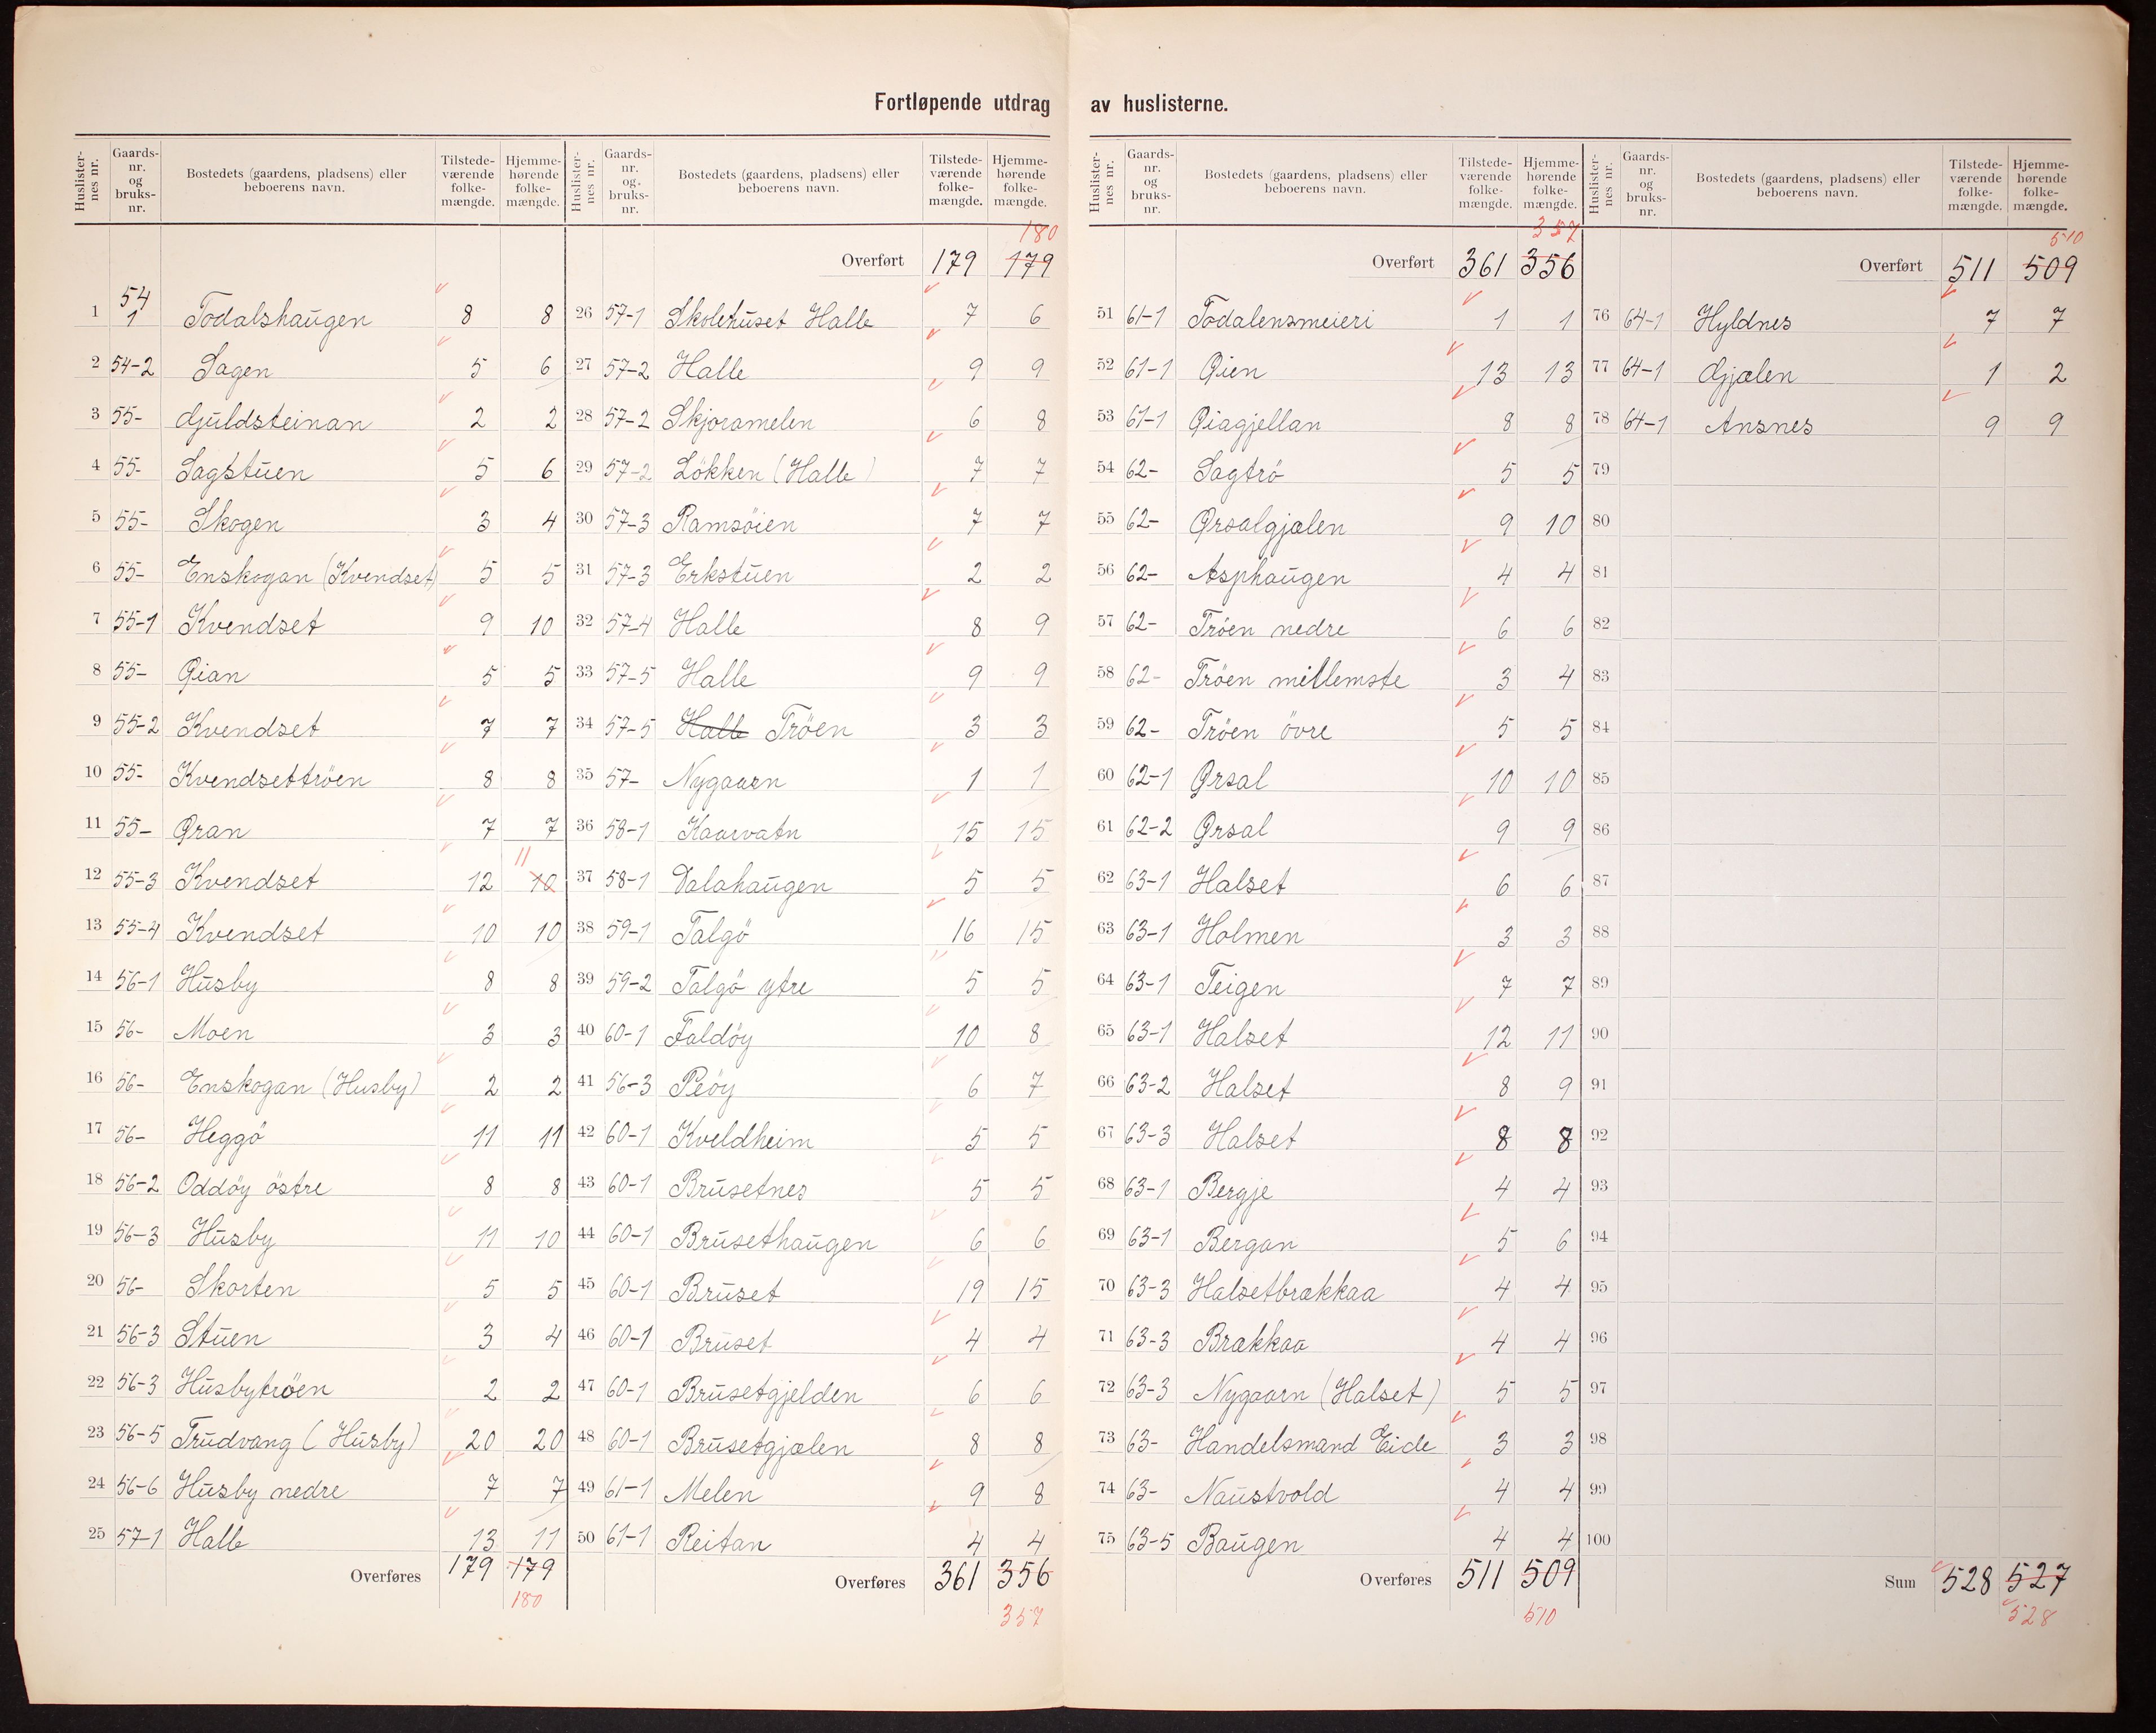 Fortløpende utdrag av huslisterne.
Huslister-nes nr. Gaards-nr. og bruks-nr. Bostedets (gaardens, pladsens) eller beboerens navn. Tilstede-værende folke-mængde. Hjemme-hørende folke-mængde.
1 54 1 Todalshaugen 8 8
2 54-2 Sagen 5 6
3 55- Gjuldsteinan 2 2
4 55- Sagstuen 5 6
5 55- Skogen 3 4
6 55- Enskogan (Kvendset) 5 5
7 55-1 Kvendset 9 10
8 55- Øian 5 5
9 55-2 Kvendset 7 7
10 55- Kvendsettröen 8 8
11 55- Øran 7 7
12 55-3 Kvendset 12 10 11
13 55-4 Kvendset 10 10
14 56-1 Husby 8 8
15 56- Moen 3 3
16 56- Enskogan (Husby) 2 2
17 56- Heggö 11 11
18 56-2 Oddöy östre 8 8
19 56-3 Husby 11 10
20 56- Skorten 5 5
21 56-3 Stuen 3 4
22 56-3 Husbytröen 2 2
23 56-5 Trudvang (Husby) 20 20
24 56-6 Husby nedre 7 7
25 57-1 Halle 13 11
Overføres 179 179
180
Huslister-nes nr. Gaards-nr. og bruks-nr. Bostedets (gaardens, pladsens) eller beboerens navn. Tilstede-værende folke-mængde. Hjemme-hørende folke-mængde.
180
Overført 179 179
26 57-1 Skolehuset Halle 7 6
27 57-2 Halle 9 9
28 57-2 Skjoramelen 6 8
29 57-2 Lökken (Halle) 7 7
30 57-3 Ramsöien 7 7
31 57-3 Erkstuen 2 2
32 57-4 Halle 8 9
33 57-5 Halle 9 9
34 57-5 Halle Tröen 3 3
35 57- Nygaarn 1 1
36 58-1 Kaarvatn 15 15
37 58-1 Dalahaugen 5 5
38 59-1 Talgö 16 15
39 59-2 Talgö ytre 5 5
40 60-1 Faldöy 10 8
41 56-3 Peöy 6 7
42 60-1 Kveldheim 5 5
43 60-1 Brusetnes 5 5
44 60-1 Brusethaugen 6 6
45 60-1 Bruset 19 15
46 60-1 Bruset 4 4
47 60-1 Brusetgjelden 6 6
48 60-1 Brusetgjælen 8 8
49 61-1 Melen 9 8
50 61-1 Reitan 4 4
Overføres 361 356
357
Huslister-nes nr. Gaards-nr. og bruks-nr. Bostedets (gaardens, pladsens) eller beboerens navn. Tilstede-værende folke-mængde. Hjemme-hørende folke-mængde.
357
Overført 361 356
51 61-1 Todalensmeieri 1 1
52 61-1 Øien 13 13
53 61-1 Øiagjellan 8 8
54 62- Sagtrö 5 5
55 62- Ørsalgjælen 9 10
56 62- Asphaugen 4 4
57 62- Tröen nedre 6 6
58 62- Tröen mellemste 3 4
59 62- Tröen övre 5 5
60 62-1 Ørsal 10 10
61 62-2 Ørsal 9 9
62 63-1 Halset 6 6
63 63-1 Holmen 3 3
64 63-1 Teigen 7 7
65 63-1 Halset 12 11
66 63-2 Halset 8 9
67 63-3 Halset 8 8
68 63-1 Bergje 4 4
69 63-1 Bergan 5 6
70 63-3 Halsetbrækkaa 4 4
71 63-3 Brækkaa 4 4
72 63-3 Nygaarn (Halset) 5 5
73 63- Handelsmand Eide 3 3
74 63- Naustvold 4 4
75 63-5 Baugen 4 4
Overføres 511 509
510
Huslister-nes nr. Gaards-nr. og bruks-nr. Bostedets (gaardens, pladsens) eller beboerens navn. Tilstede-værende folke-mængde. Hjemme-hørende folke-mængde.
510
Overført 511 509
76 64-1 Hyldnes 7 7
77 64-1 Gjælen 1 2
78 64-1 Ansnes 9 9
79
80
81
82
83
84
85
86
87
88
89
90
91
92
93
94
95
96
97
98
99
100
Sum 528 527
528